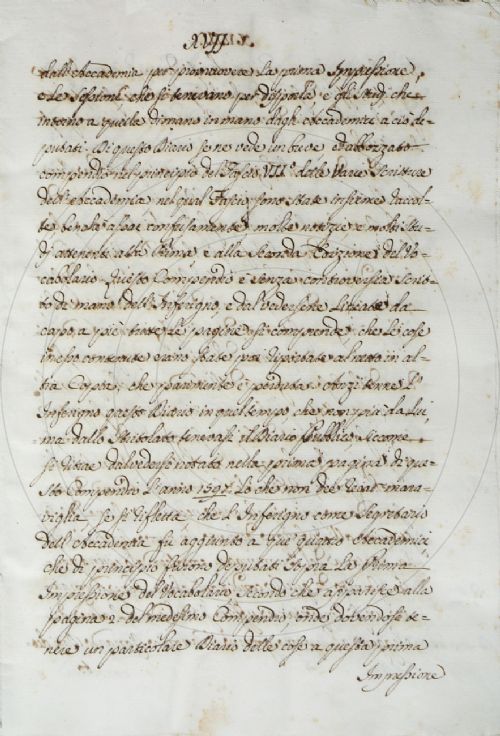 XVIII
dall'Accademia per promuovere la prima Impressione,
e le Sessioni, che si tenevano per disporla, e gli studj, che
intorno a quella di mano in mano dagli Accademici a ciò de-
putati. Di questo Diario se ne vede un breve ed abbozzato
compendio nel principio del Fascio VIII.º delle varie Scritture
dell'Accademia nel qual Fascio sono state insieme raccol-
te benchè assai confusamente molte notizie e molti stu-
dj attenenti alla Prima e alla Seconda Edizione del Vo-
cabolario. Questo Compendio è senza controversia scrit-
to di mano dell'Inferigno, e dal vedersele lineate da
capo a piè tutte le pagine si comprende che le cose
in esso contenute erano state poi copiate al netto in al-
tra Copia, che parimente è perduta. Anzi tenne l'
Inferigno questo Diario in quel tempo che non più da lui,
ma dallo Stritolato tenevasi il Diario Pubblico, siccome
si ritrae dal vedersi notato nella prima pagina di que-
sto Compendio l'anno 1597. Lo che non dee recar mara-
viglia se si rifletta che l'Inferigno come Segretario
dell'Accademia fu aggiunto a que' quattro Accademici
che di principio furono deputati sopra la Prima
Impressione del Vocabolario secondo che apparisce alla
pagina 2. del medesimo Compendio; onde dovendosi te-
nere un particolare Diario delle cose a questa prima
Impressione